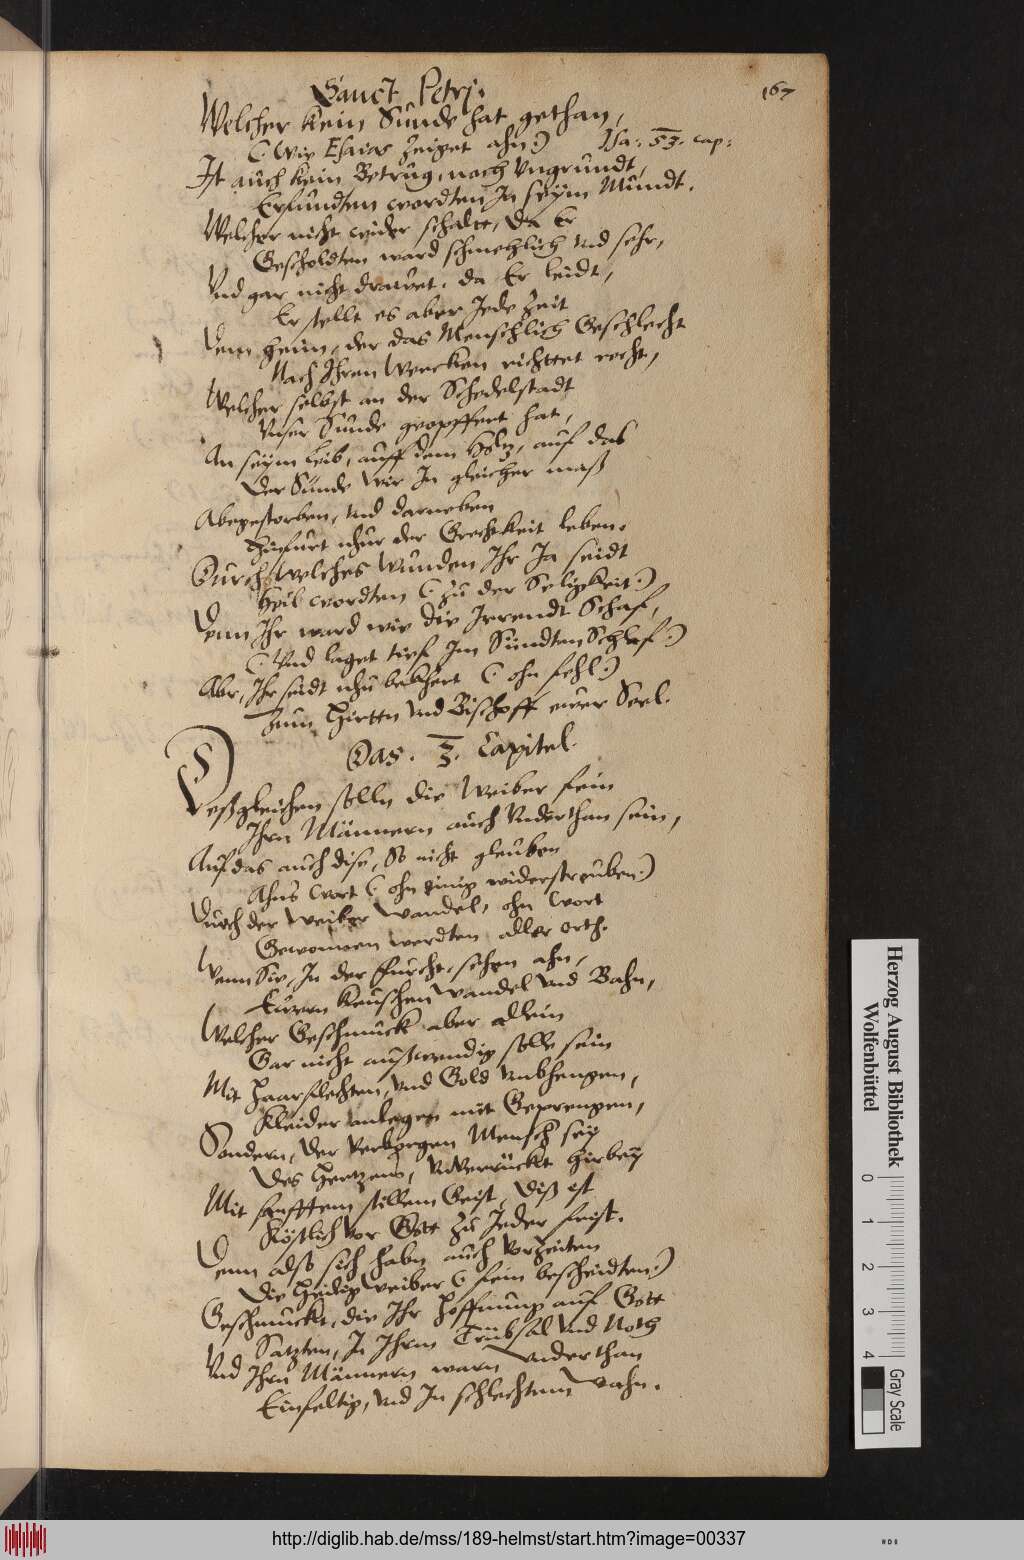 Sanct Petrj.
167
Welcher kein Sünde hat gethan,
(: Wie Esaias zeiget ahn :) Jsa: 53. cap:
Ist auch kein Betrug, noch Vngrundt,
Erfundten wordten In seÿm Mundt.
Welcher nicht wider schalte, da Er
Gescholdten ward schmehlich vnd sehr,
Vnd gar nicht drawet, da Er leidt,
Er stellt es aber Jede Zeit
Dem heim, der das Menschlich Geschlecht
Nach Ihren Wercken richttet recht,
Welcher selbst an der Schedelstadt
Vnser Sünde geopffert hat,
An seÿm Leib, auff dem Holtz, auf das
Der Sünde wir In gleicher maß
Abgestorben, vnd darneben
Hinfurt nhur der Grechtkeit leben.
Durch Welches Wunden Ihr Ja seidt
Heil wordten (: zu der Seligkeit :)
Denn Ihr ward wie die Irrendt Schaf,
(: Vnd laget tief Im Sündten Schlaf :)
Abr, Ihr seidt nhu bekhert (: ohn fehl :)
Zum Hirtten vnd Bischoff ewer Seel.
Das. 3. Capitel.
Deßgleichen solln die Weiber fein
Ihrn Männern auch Vnderthan sein,
Auf das auch dise, So nicht gleuben
Ahns Wort (: ohn einig widerstreuben :)
Durch der Weiber Wandel, ohn Wort
Gewonnen werdten aller orth.
Wenn Sie, In der furcht, sehen ahn,
Eüren keuschen Wandel vnd Bahn,
Welcher Geschmuck aber allein
Gar nicht außwendig solle sein
Mit Haarflechten, vnd Gold vmbhengen,
Kleider anlegen mit Geprengen,
Sondern, der Verborgen Mensch seÿ
Des Hertzens, vnverrückt hirbeÿ
Mit sanfftem stillem Geist, diß ist
Köstlich vor Gott zu Jeder frist.
Denn also sich habn auch Vorzeiten
Die Heilig Weiber (: fein bescheidten :)
Geschmückt, die Ihr Hoffnung auf Gott
Satzten, In Ihrm Trübsal vnd Noth
Vnd Ihrn Männern warn vnderthan
Einfeltig, vnd In schlechtem wahn.
Herzog August Bibliothek
Wolfenbüttel
0 1 2 3 4
Gray Scale
http://diglib.hab.de/mss/189-helmst/start.htm?image=00337